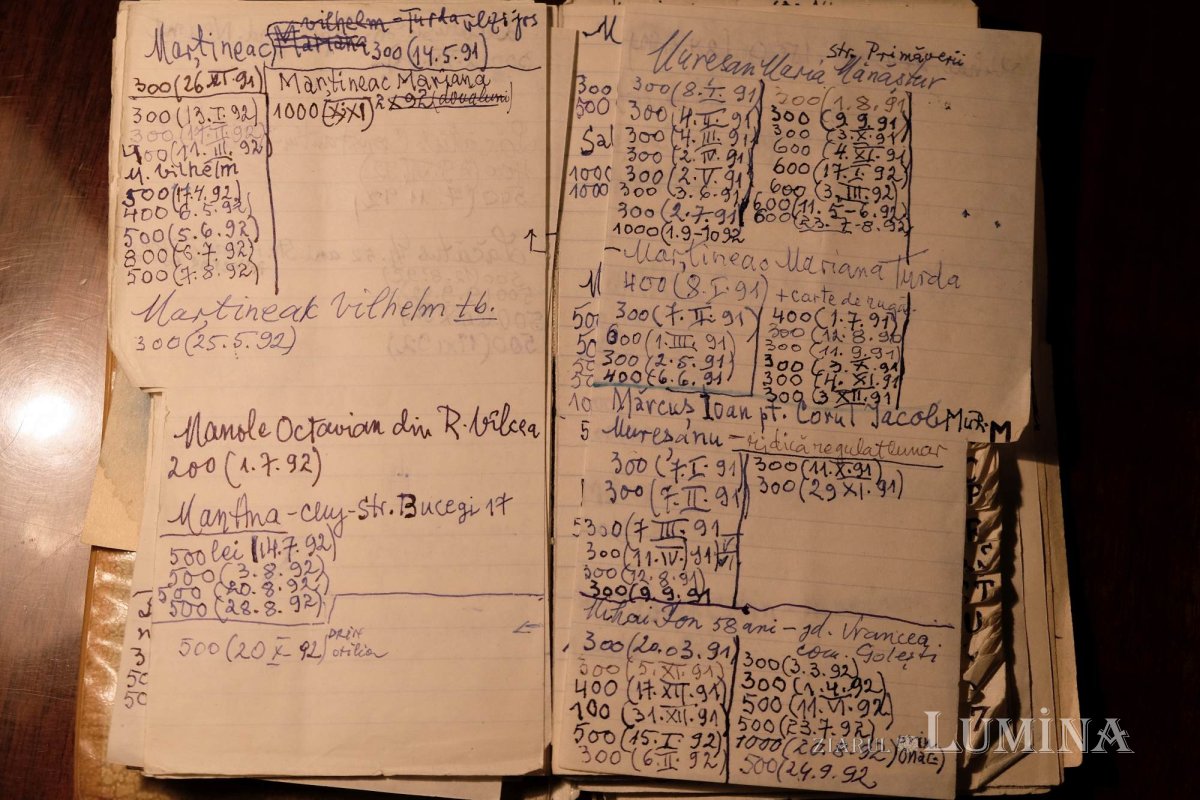 vilhelm - Turda
Marțineac Mariana 300 (14.5.91)
300 (26 XI. 91)
300 (13. I. 92)
300 (17. II. 92)
400 (11. III. 92)
M. vilhelm
500 (17.4.92)
400 (6.5.92)
500 (5.6.92)
800 (6.7.92)
500 (7.8.92)
Marțineac Mariana
1000
Marțineak Vilhelm tb.
300 (25.5.92)
Manole Octavian din R. Vîlcea
200 (1.7.92)
Mantna - Cluj - Str. Bucegi 17
500 lei (14.7.92)
500 (3.8.92)
500 (20.8.92)
500 (28.8.92)
500 (20 X 92) prin otilia
M
300
500
Sal
1000
1000
M
str. Primăverii
Mureșan Maria Mănăștur
300 (8. I. 91)
300 (4. II. 91)
300 (4. III. 91)
300 (2. IV. 91)
300 (2. V. 91)
300 (3.6.91)
300 (2.7.91)
1000 (1.9-1092
300 (1.8.91)
300 (9.9.91)
300 (3.X.91)
600 (4.XI.91)
600 (17.I.92)
600 (3.III.92)
600 (11.5-6.92)
600 (23.7-8.92)
- Marțineac Mariana Turda
400 (8. I. 91)
300 (7. II. 91)
600 (1. III. 91)
300 (2.5.91)
400 (6.6.91)
+ carte de rugă.
400 (1.7.91)
300 (12.8.91)
300 (11.9.91)
300 (3.X.91)
300 (4.XI.91)
300 (3 XII 91)
Mărcuș Ioan pt. Corul Jacob Mur. M
Mureșanu - ridică regulat lunar
300 (7. I. 91)
300 (7. II. 91)
300 (7 III. 91
300 (11. IV. 91
300 (12.8.91)
300 (9.9.91)
300 (11.X.91)
300 (29 XI.91)
Mihai Ion 58 ani - jd. Vrancea
com. Golești
300 (20.03.91)
300 (5.XI.91)
400 (17.XII.91)
100 (31.XII.91)
500 (15.I.92)
300 (6.II.92)
300 (3.3.92)
300 (1.4.92)
500 (11.VI.92)
500 (23.7.92)
500 (24.9.92
ZIARUL LUMINA